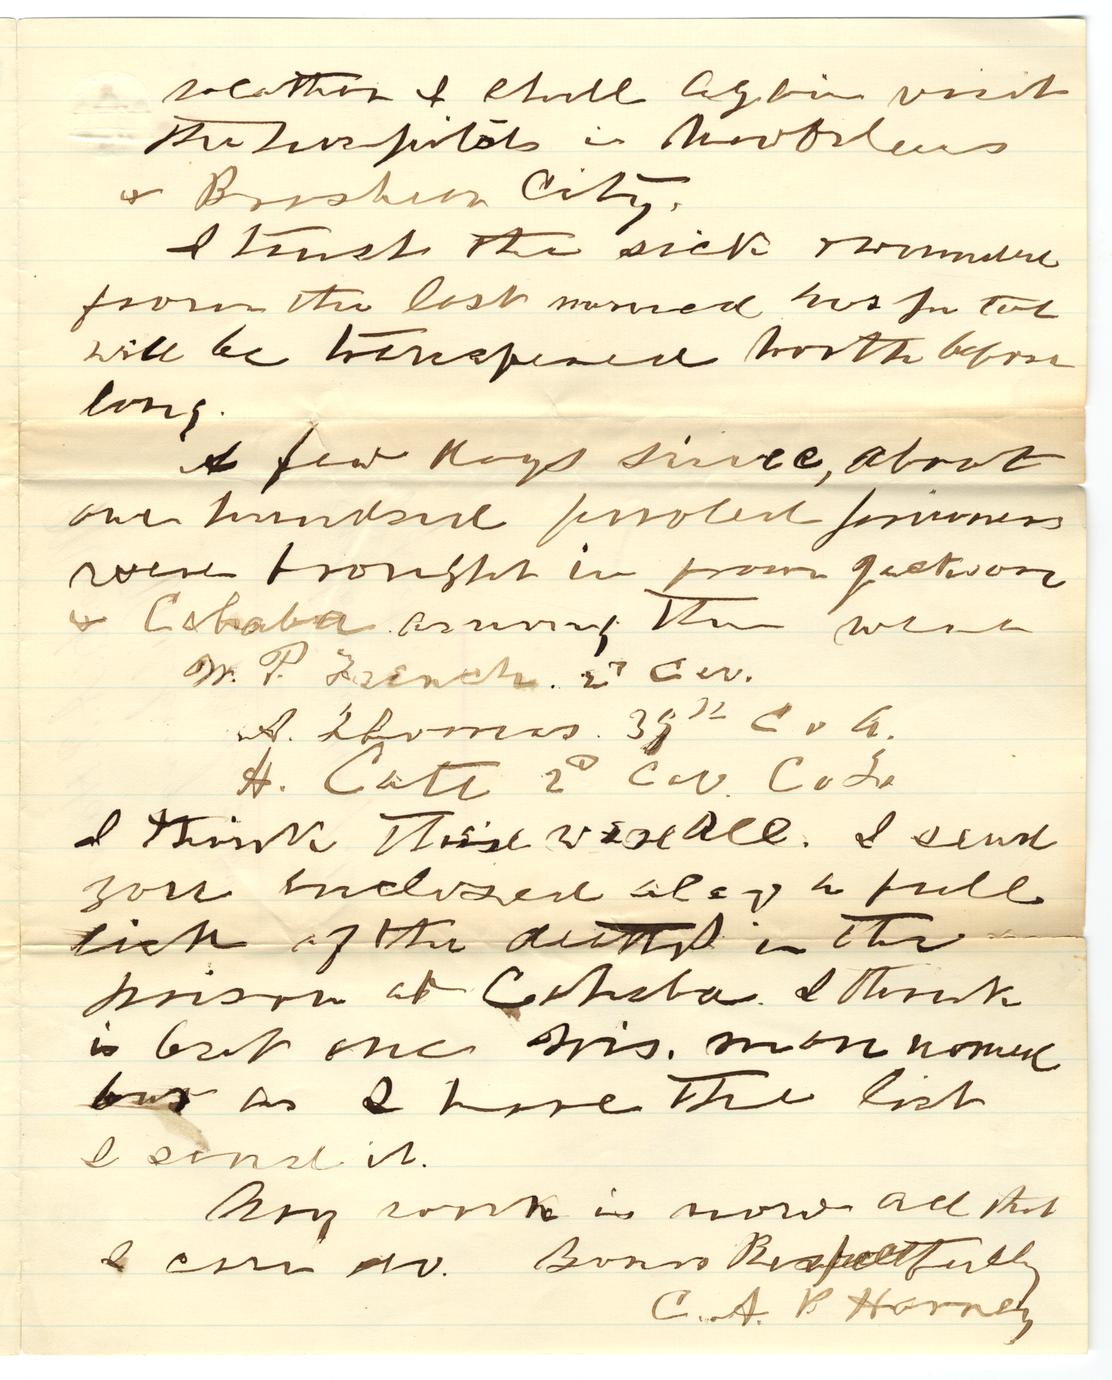 weather I shall again visit
the hospitals in New Orleans
& Brashear City.
I trust the sick & wounded
from the last named hospital
will be transfered North before
long.
A few days since, about
one hundred paroled prisoners
were brought in from Jackson
& Cahaba among them were
W. P. French. 2d Cav.
A. Thomas. 39th Co A.
H. Catt 2d Cav. Co
I think these were all. I send
you enclosed also a full
list of the deaths in the
prison at Cahaba. I think
is but one Wis. man named
but as I have the list
I send it.
My work is now all that
I can do. Yours Respectfully
C. A. B Harney